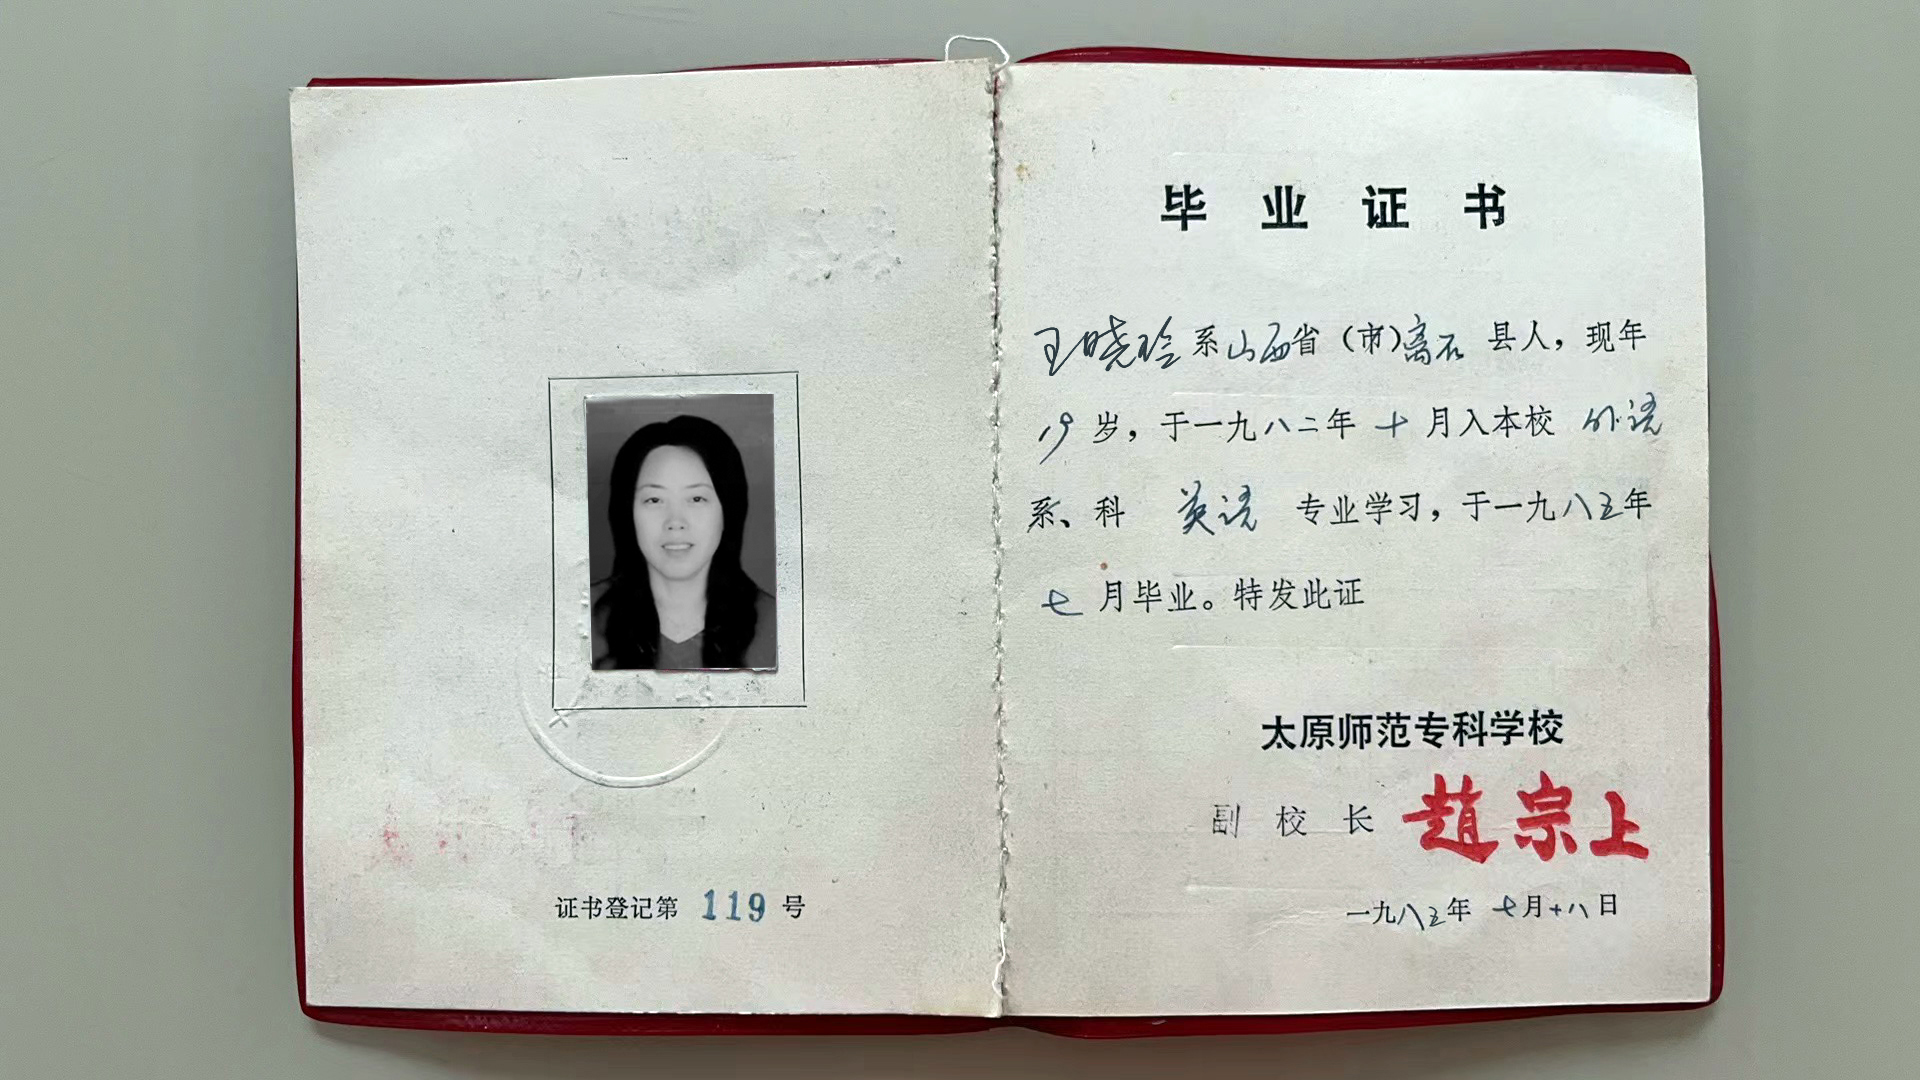 证书登记第 119 号
毕业证书
王晓玲系山西省（市）离石县人，现年
19岁，于一九八二年十月入本校外语
系、科 英语 专业学习，于一九八五年
七月毕业。特发此证
太原师范专科学校
副校长 赵宗上
一九八五年七月十八日